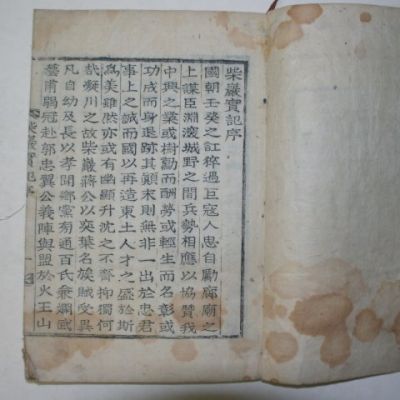 柴巖實記序
國朝壬癸之訌猝遇巨寇人思自勵廊廟之
上謀臣淵深城野之間兵勢相應以協贊我
中興之業或樹勳而酬勞或輕生而名彰或
功成而身退跡其顚末則無非一出於忠君
事上之誠而國以再造東土人才之盛於斯
爲美雖然亦或有幽顯升沈之不齊抑獨何
哉凝川之故柴巖蔣公以奕葉名族賦受異
凡自幼及長以孝聞鄕黨旁通百氏衆爛或
藝甫弱冠赴郭忠翼公義陣與盟於火王山
柴巖實記序
一